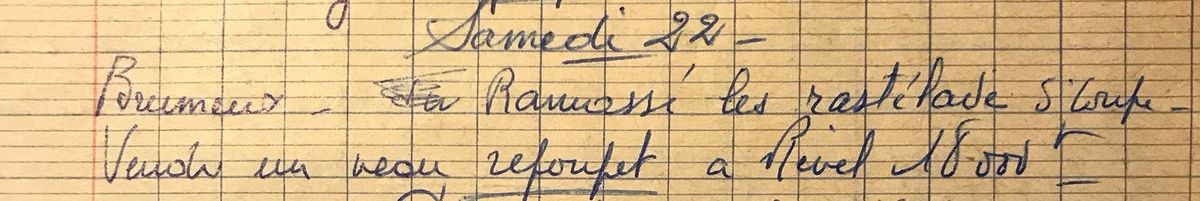 Samedi 22 -
Brumeux - Ramassé les rastélade S' Loup -
Vendu un veau refoufet a Revel 18000 F